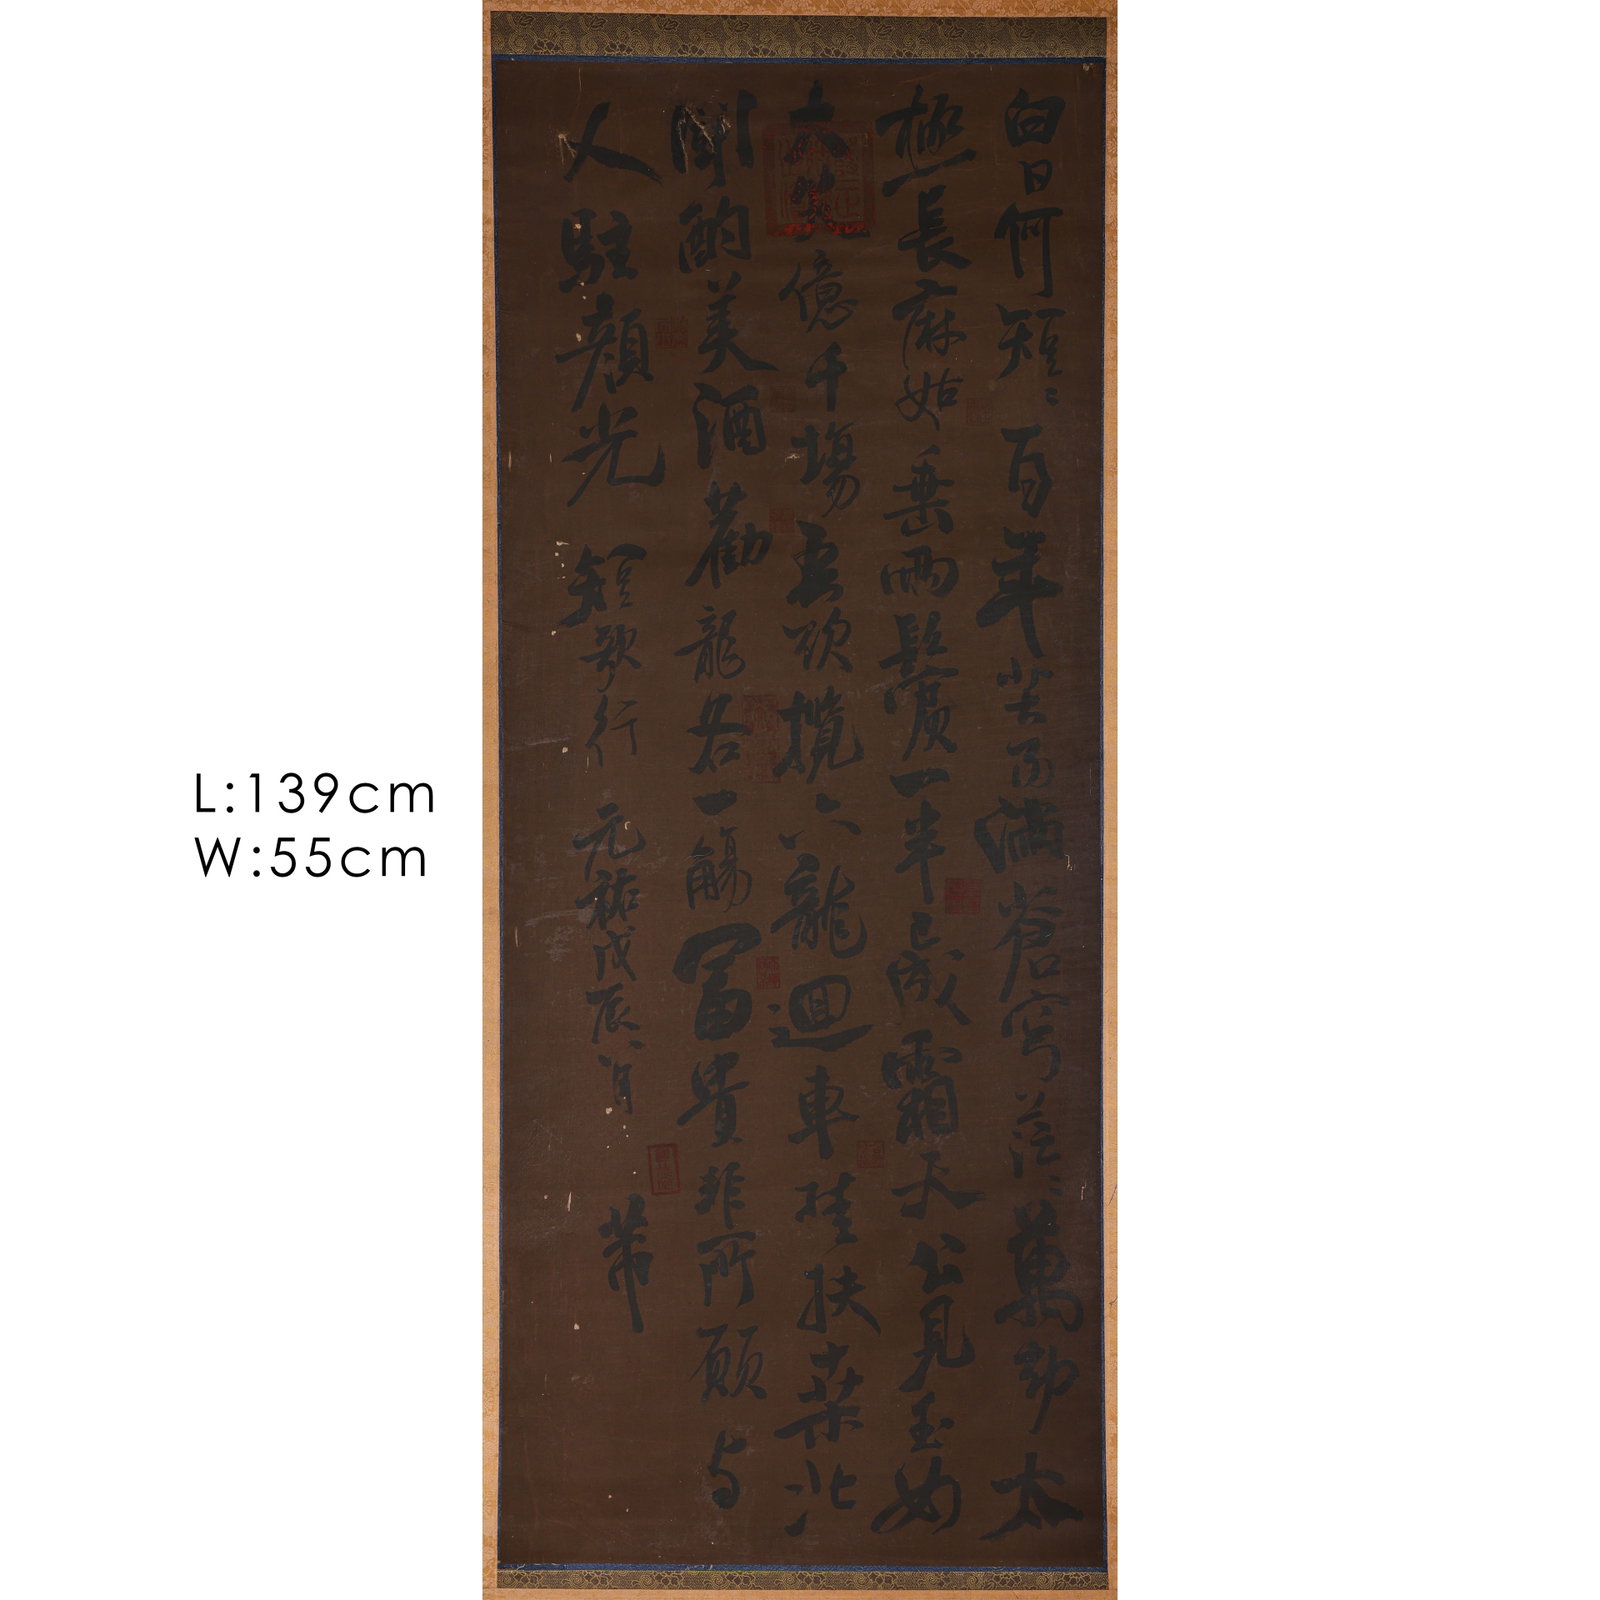 L:139cm
W:55cm
白日何短〻百年苦易滿蒼穹茫〻萬劫太
極長麻姑垂兩鬢一半已成霜天公見玉女
大笑億千場吾欲攬六龍迴車挂扶桑北
斗酌美酒勸龍各一觴富貴非所願与
人駐顔光 短歌行 元祐戊辰八月 芾